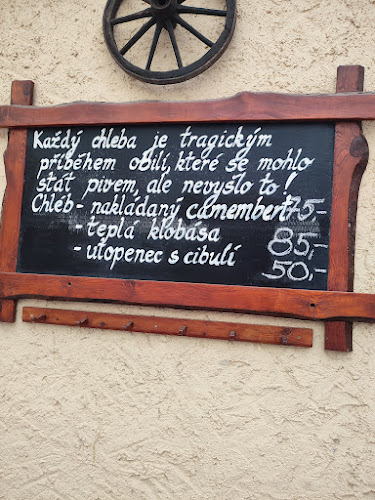 Každý chleba je tragickým
příběhem obilí, které se mohlo
stát pivem, ale nevyšlo to!
Chléb - nakládaný camembert 75,-
- teplá klobása 85,-
- utopenec s cibulí 50,-